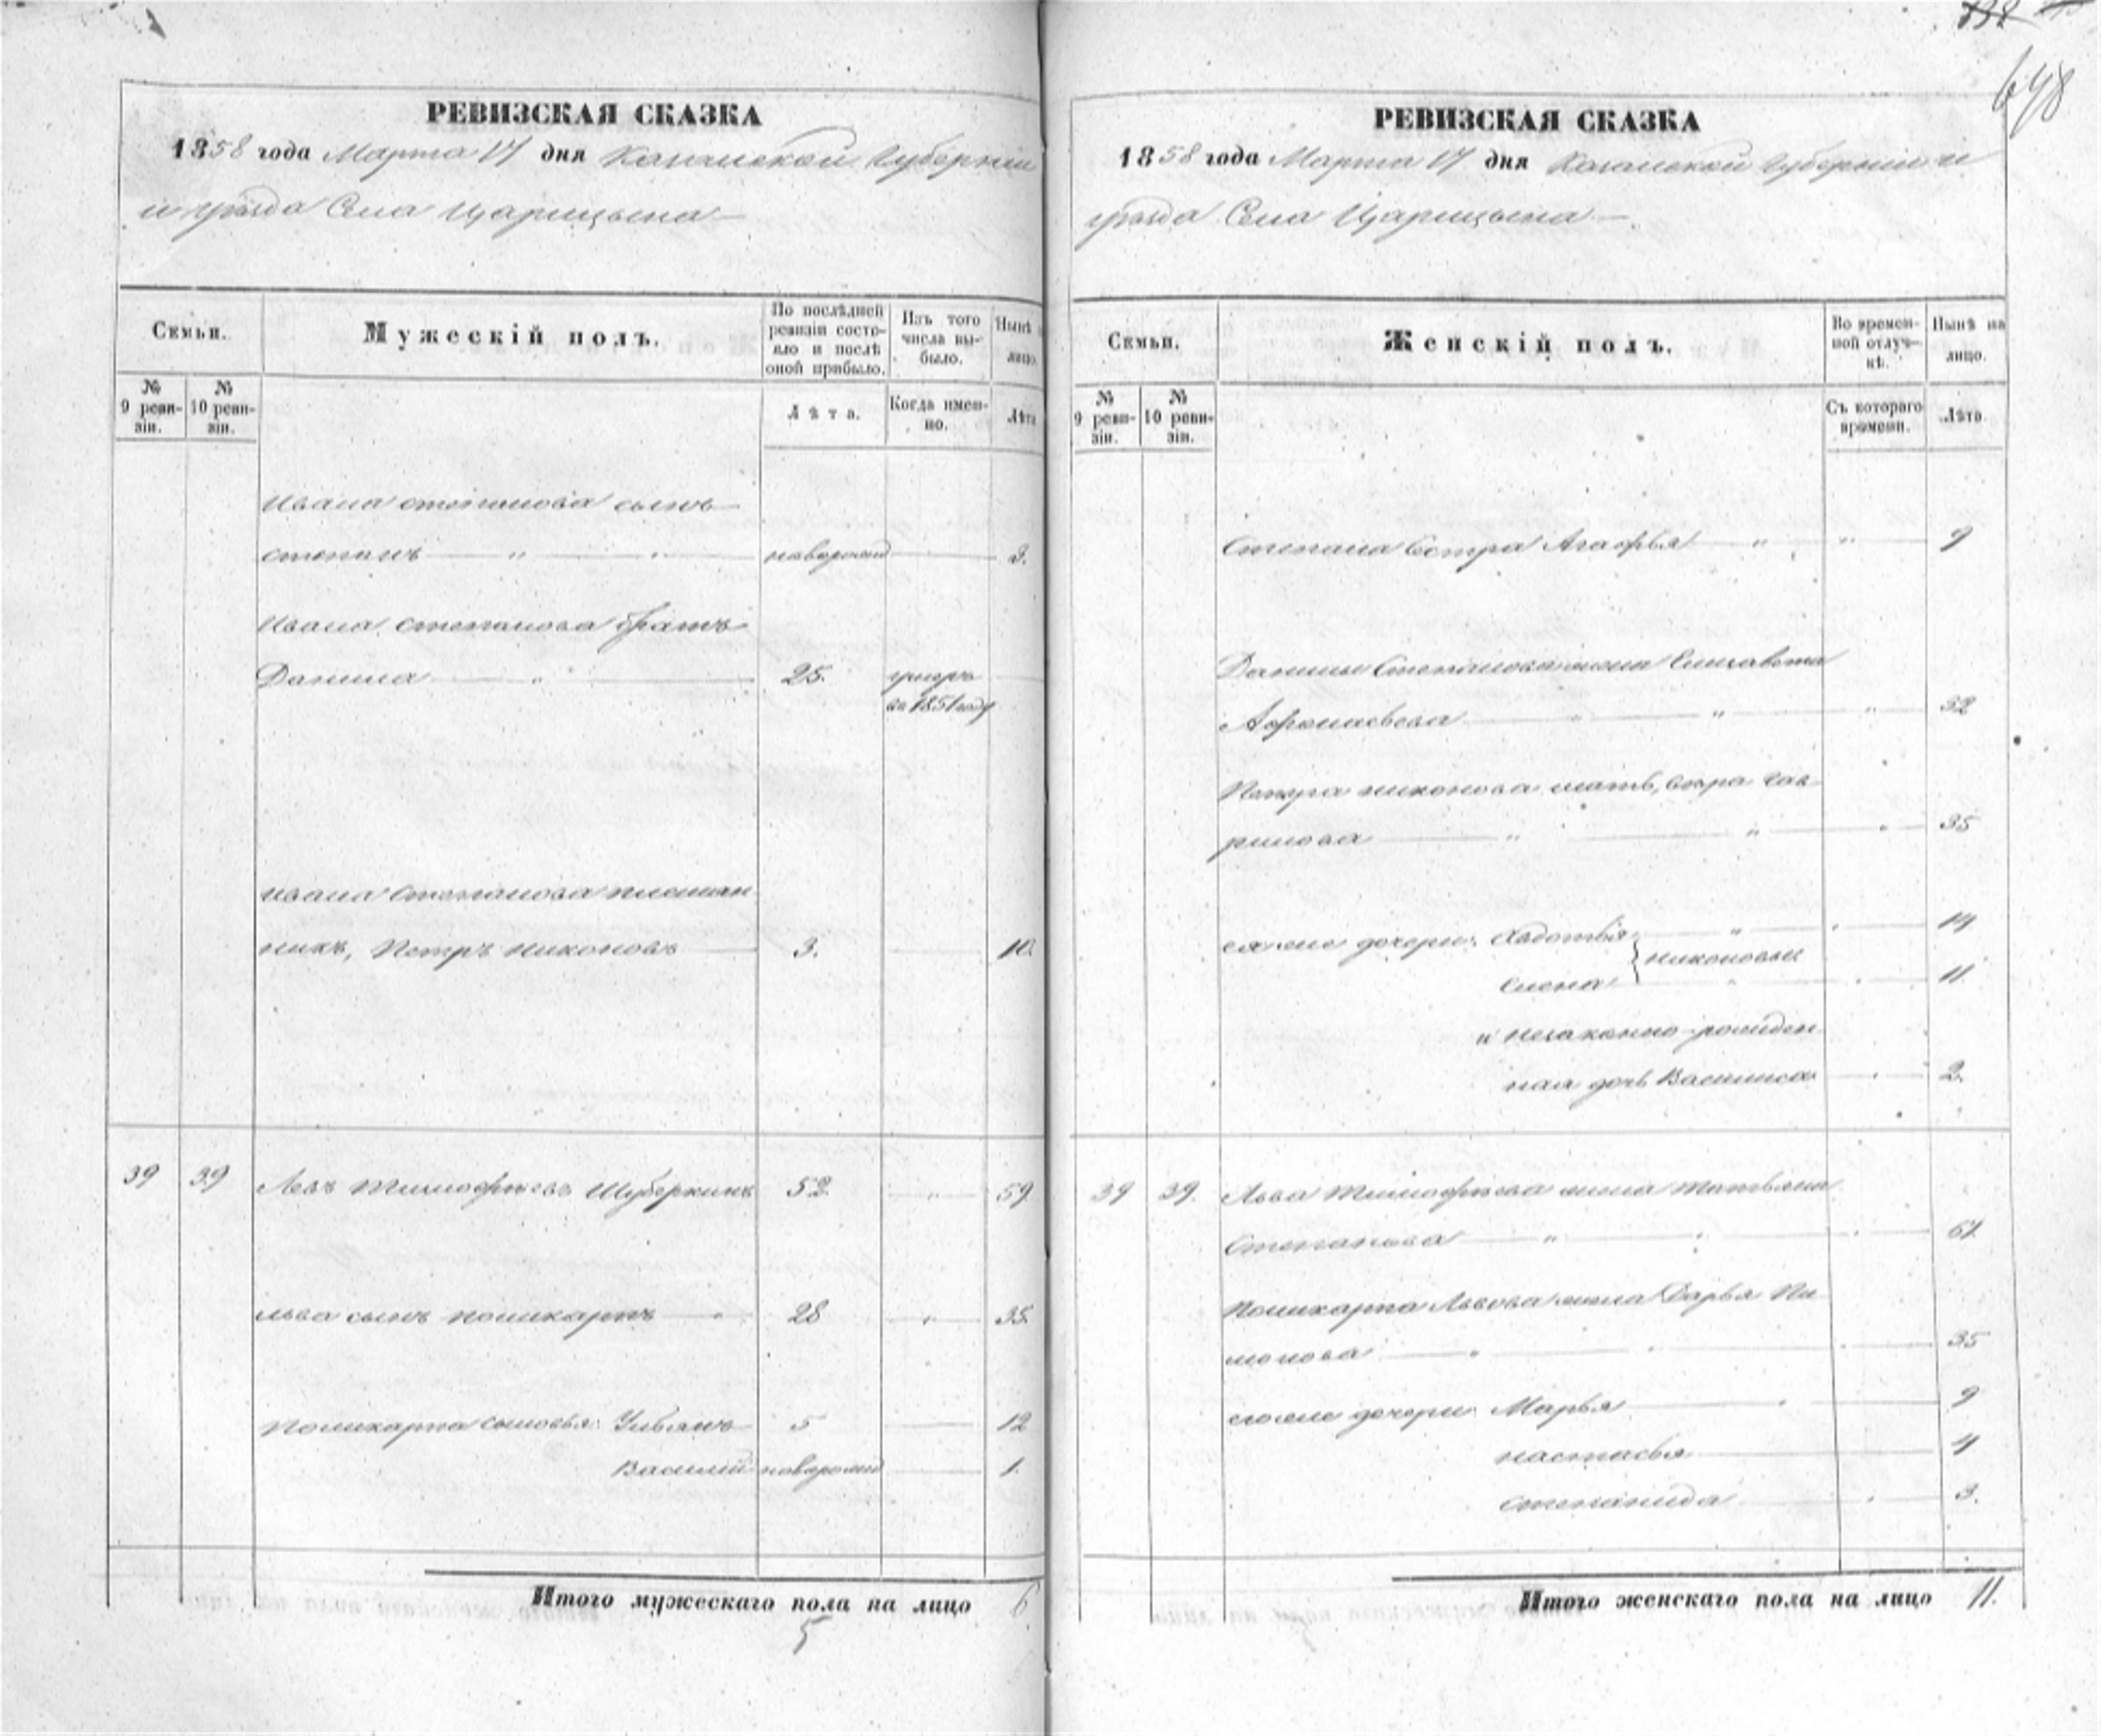 648
РЕВИЗСКАЯ СКАЗКА
1858 года Марта 17 дня Казанской Губерніи
и уѣзда Села Царицына
Семьи.
Мужескій полъ.
По послѣдней ревизіи состояло и послѣ оной прибыло.
Изъ того числа выбыло.
Нынѣ на лицо.
№ 9 ревизіи.
№ 10 ревизіи.
Лѣта.
Когда именно.
Лѣта
Ивана Степанова сынъ
Степанъ " " новорожд 3.
Ивана Степанова братъ
Данила " 25. умеръ
въ 1851 году
Ивана Степанова племян
никъ, Петръ Никоновъ 3. 10.
39 39 Левъ Тимофѣевъ Шуберкинъ 52 " 59
Льва сынъ Поликарпъ " 28 " 35.
Поликарпа сыновья: Ульянъ 5 12
Василій новорожд 1.
Итого мужескаго пола на лицо 6
5
РЕВИЗСКАЯ СКАЗКА
1858 года Марта 17 дня Казанской Губерніи и
уѣзда Села Царицына
Семьи.
Женскій полъ.
Во временной отлучкѣ.
Нынѣ на лицо.
№ 9 ревизіи.
№ 10 ревизіи.
Съ котораго времени.
Лѣта.
Степана Сестра Агафья " " 9
Данилы Степанова жена Елизавета
Афонасьева " " " 32
Петра Никонова мать, Вѣра Гав
рилова " " " 35
ея же дочери: Авдотья " " 14
Никоновы
Елена " " 11.
и незаконно-рожден
ная дочь Василиса " 2.
39 39. Льва Тимофѣева жена Татьяна
Степанова " " " 61
Поликарпа Львова жена Дарья Пи
монова " " " 35
его же дочери: Марья " 9
Настасья 4
Степанида " 3.
Итого женскаго пола на лицо 11.